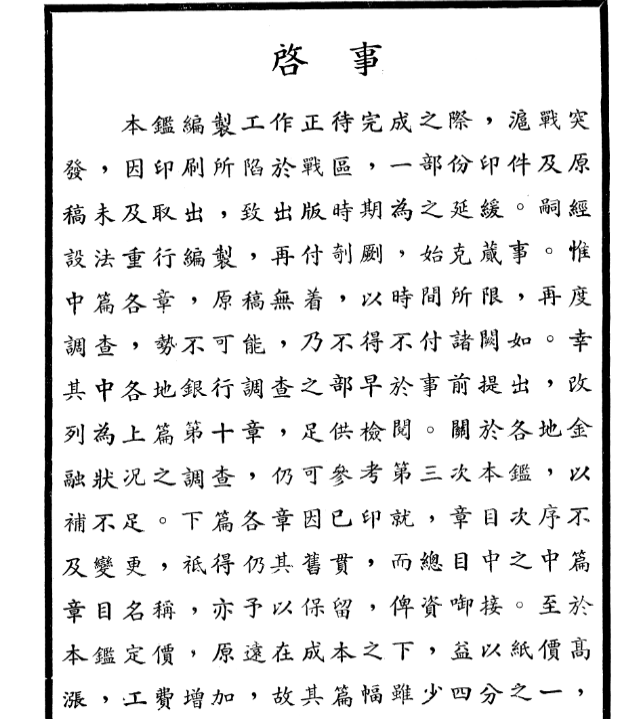 啓事
本鑑編製工作正待完成之際，滬戰突
發，因印刷所陷於戰區，一部份印件及原
稿未及取出，致出版時期為之延緩。嗣經
設法重行編製，再付剞劂，始克蕆事。惟
中篇各章，原稿無着，以時間所限，再度
調查，勢不可能，乃不得不付諸闕如。幸
其中各地銀行調查之部早於事前提出，改
列為上篇第十章，足供檢閱。關於各地金
融狀況之調查，仍可參考第三次本鑑，以
補不足。下篇各章因已印就，章目次序不
及變更，祇得仍其舊貫，而總目中之中篇
章目名稱，亦予以保留，俾資啣接。至於
本鑑定價，原遠在成本之下，益以紙價高
漲，工費增加，故其篇幅雖少四分之一，